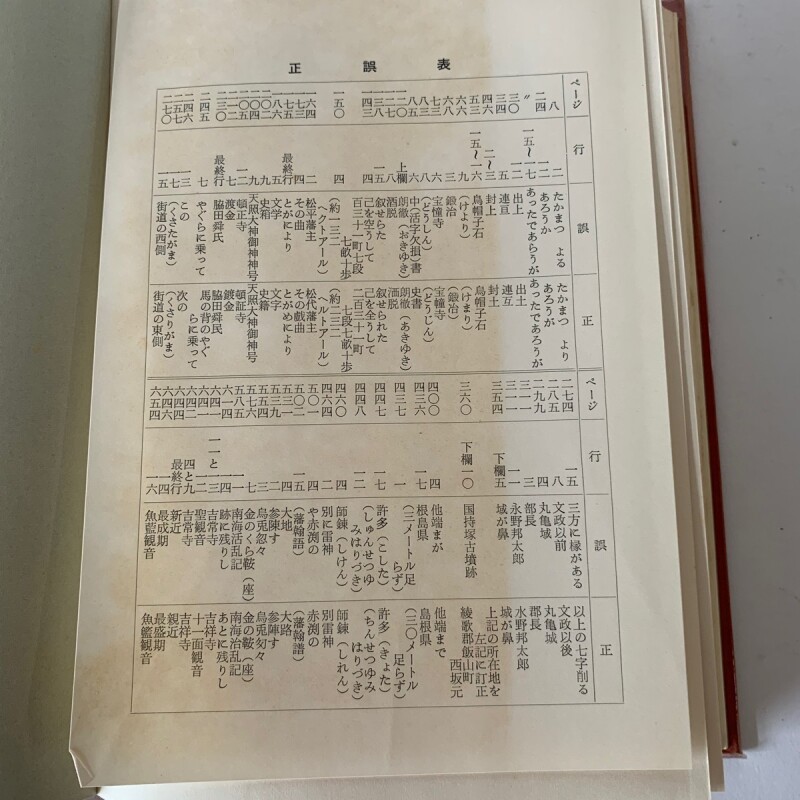 正誤表
ページ
八
二四
〃
三〇
三四
四六
五三
六三
六六
一五〇
二四五
二七〇
行
一二
一五～一七
一二
五
二～三
一五～一六
三
九
上欄
一八
一五
四
四
最終行
最終行
七
誤
たかまつ　よる
あろうか
あったであらうが
出上
連亘
封上
烏帽子石
（けより）
鍛冶
宝憧寺
（どうしん）
中（活字欠損）書
朗徹（おきゆき）
酒脱
叙せらた
己を空うして
百三十一町七段
七畝十歩
（約一三二
ヘクトアール）
松平藩主
その曲
とがにより
文学
史箱
天照大神御神神号
頓正寺
渡金
脇田舜氏
やぐらに乗って
この
（くさたがま）
街道の西側
正
たかまつ　より
あろうが
あったであろうが
出土
連互
封土
烏帽子石
（けまり）
（鍛冶）
宝幢寺
（どうじん）
史書
朗徹（あきゆき）
洒脱
叙せられた
己を全うして
二百三十一町
七段七畝十歩
（約二三一
ヘルトアール）
松代藩主
その戯曲
とがめにより
文字
史籍
天照大神御神号
頓証寺
鍍金
脇田舜民
馬の背のやぐ
らに乗って
次の
（くさりがま）
街道の東側
ページ
二七四
二八五
二九九
三一一
三一一
三五四
三六〇
四〇〇
四三六
四三七
四四七
四四八
四六〇
四六四
五〇一
五〇二
五三一
五三九
五七六
五八五
六一四
六四一
六四一
六四二
六四四
六四六
六五四
行
一五
八
四
三
一一
下欄五
下欄一〇
四
一七
一
一七
一二
四
二
四
一五
四
二
七
一三
一四
一一と一三
一二
四と九
最終行
一四
一六
誤
三方に椽がある
文政以前
丸亀城
部長
永野邦太郎
城が鼻
国持塚古墳跡
他端まが
根島県
（三メートル足
らず）
許多（こした）
（しゅんせつゆ
みはりづき）
師錬（しけん）
別に雷神
や赤渕の
（藩翰語）
大地
参陣す
烏兎忽々
金のくら鞍（座）
南海活乱記
跡に残りし
吉常寺
聖観音
吉常寺
新近
最成期
魚籃観音
正
以上の七字削る
文政以後
丸亀城
郡長
水野邦太郎
城が鼻
上記の所在地を
左記に訂正
綾歌郡飯山町
西坂元
他端まで
島根県
（三〇メートル
足らず）
許多（きょた）
（ちんせつゆみ
はりづき）
師錬（しれん）
別雷神
赤渕の
（藩翰譜）
大路
参陣す
烏兎匆々
金の鞍（座）
南海治乱記
あとに残りし
吉祥寺
十一面観音
吉祥寺
親近
最盛期
魚籃観音